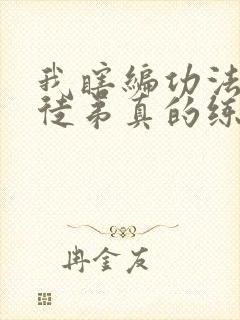 我瞎编功法
徒弟真的练
冉金友